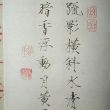 疏影橫斜水清淺
暗香浮動月黃昏